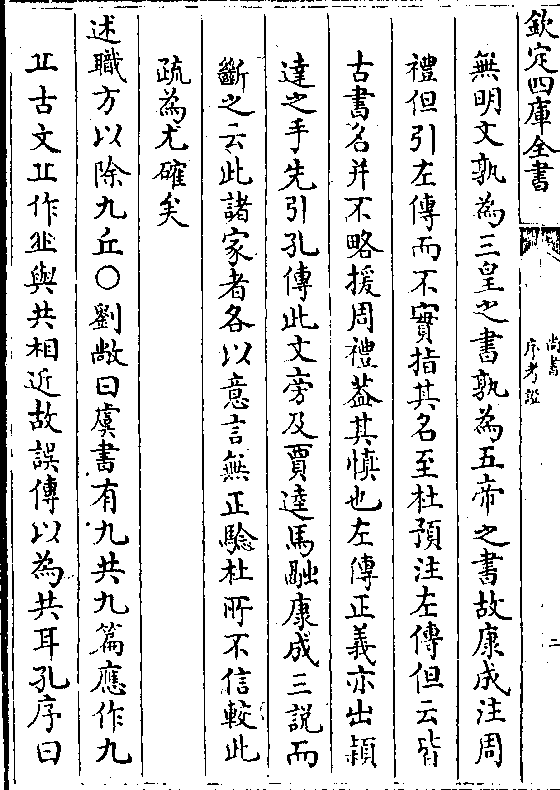 欽定四庫全書
尚書
序考證
二
無明文孰為三皇之書孰為五帝之書故康成注周
禮但引左傳而不實指其名至杜預注左傳但云皆
古書名并不略援周禮葢其慎也左傳正義亦出穎
達之手先引孔傳此文旁及賈逹馬融康成三說而
斷之云此諸家者各以意言無正驗杜所不信較此
疏為尤確矣
述職方以除九丘○劉敞曰虞書有九共九篇應作九
㐀古文㐀作𠀌與共相近故誤傳以為共耳孔序曰